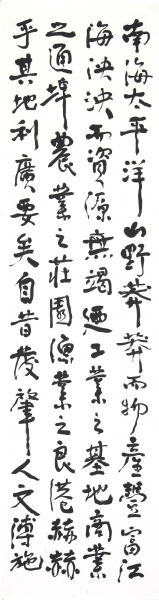 南海太平洋山野莽莽而物產豐富江
海泱泱而資源無竭迺工業之基地商業
之通埠農業之莊園漁業之良港赫赫
乎其地利廣要矣自昔發肇人文溥施